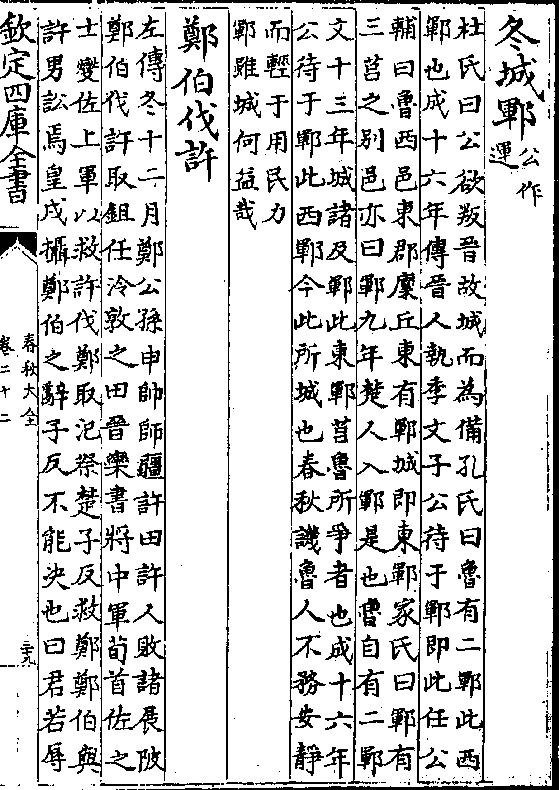 冬城鄆公作
運
杜氏曰公欲叛晉故城而為備孔氏曰魯有二鄆此西
鄆也成十六年傳晉人執季文子公待于鄆即此任公
輔曰魯西邑東郡廩丘東有鄆城即東鄆家氏曰鄆有
三莒之别邑亦曰鄆九年楚人入鄆是也魯自有二鄆
文十三年城諸及鄆此東鄆莒魯所爭者也成十六年
公待于鄆此西鄆今此所城也春秋譏魯人不務安靜
而輕于用民力
鄆雖城何益哉
鄭伯伐許
左傳冬十二月鄭公孫申帥師疆許田許人敗諸展陂
鄭伯伐許取鉏任泠敦之田晉欒書將中軍荀首佐之
士燮佐上軍以救許伐鄭取汜祭楚子反救鄭鄭伯與
許男訟焉皇戌攝鄭伯之辭子反不能決也曰君若辱
欽定四庫全書
春秋大全
卷二十二
三九